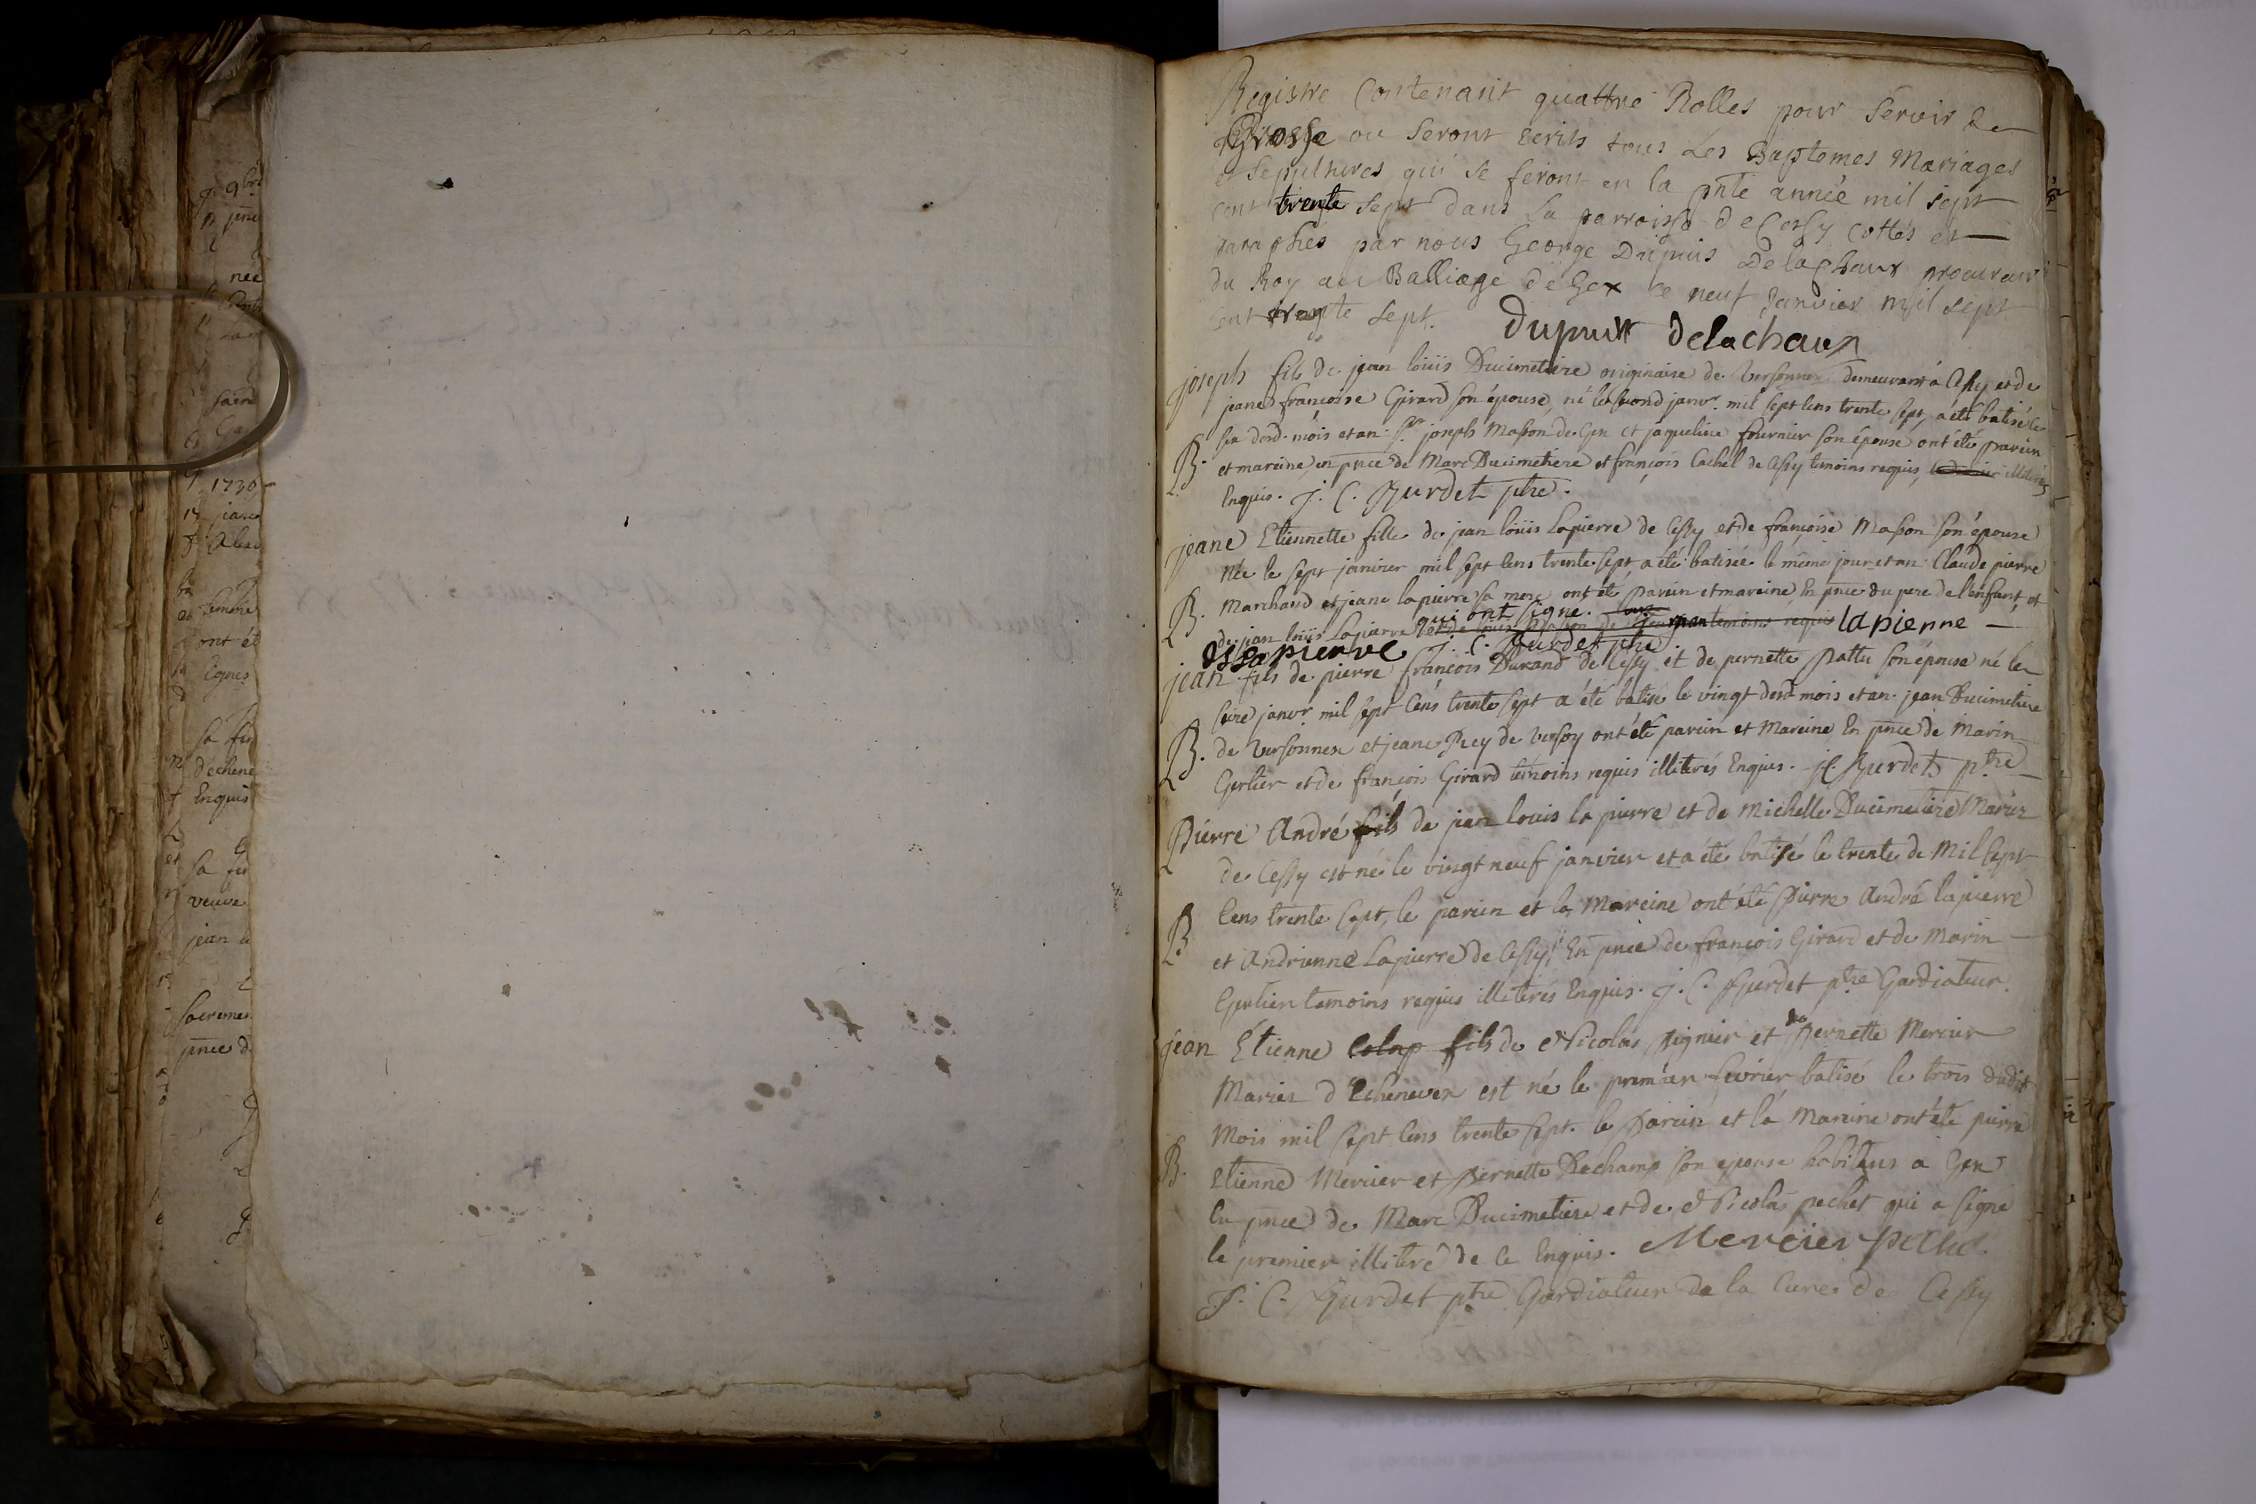 g 9bre
née
1730
ont ét
Signes
sa fe
Enquis
sa fe
veuve
jean
sacremen
pnce d
Registre Contenant quattre Rolles pour servir de
Grosse ou seront ecrits tous Les Baptemes Mariages
et sepultures qui se feront en la pnte année mil sept
cent trente sept dans La parroisse de Cessy cottés et
paraphés par nous George Dupuis Delachaux procureur
du Roy au Balliage de Gex ce neuf Janvier mil sept
cent trente sept. Dupuis Delachaux
joseph fils de jean loüis Ducimetiere originaire de Versonnex demeurant à Cessy et de
jeane françoise Girard son épouse, né le second janvr. mil sept cens trente sept, a été batisé le
six desd. mois et an. Sr. joseph Masson de Gex et jaqueline fournier son épouse ont été parein
B. et mareine, en pnce de Marc Ducimetiere et françois Cachel de Cessy temoins requis, illiterés
Enquis. J. C. Burdet ptre.
jeane Etiennette fille de jean loüis Lapierre de Cessy et de françoise Masson son épouse
Née le sept janvier mil sept cens trente sept a été batisée le même jour et an. Claude pierre
B. Marchand et jeane lapierre sa mere ont été parein et mareine, En pnce du pere de l'enfant, et
de jean loüis Lapierre qui ont signe. temoins requis lapierre
lapierre J. C. Burdet ptre.
jean fils de pierre françois Durand de Cessy et de pernette Pattu son épouse né le
seize janvr. mil sept cens trente sept a été batisé le vingt desd. mois et an. jean Ducimetiere
B. de Versonnex et jeane Rey de Versoy ont été parein et Mareine En pnce de Marin
Gerlier et de françois Girard temoins requis illiterés Enquis. J C Burdet ptre
Pierre André fils de jean louis la pierre et de Michelle Ducimetiere Mariez
de Cessy est né le vingt neuf janvier et a été batisé le trente de Mil sept
B cens trente sept, le parein et la Mareine ont été Pierre André lapierre
et Andrienne Lapierre de Cessy, En pnce de françois Girard et de Marin
Gerlier temoins requis illiterés Enquis. J. C. Burdet ptre Gardiateur.
jean Étienne fils de Nicolas et de Pernette Mercier
Mariez d'Echenevex est né le premier fevrier batisé le trois dudit
Mois mil sept cens trente sept. le Parein et la Mareine ont été pierre
B. Etienne Mercier et Pernette Dechamp son epouse habitans a Gex
En pnce de Marc Ducimetiere et de Nicolas pechet qui a signé
le premier illiteré de ce Enquis. Mercier
J. C. Burdet ptre Gardiateur de la Cure de Cessy